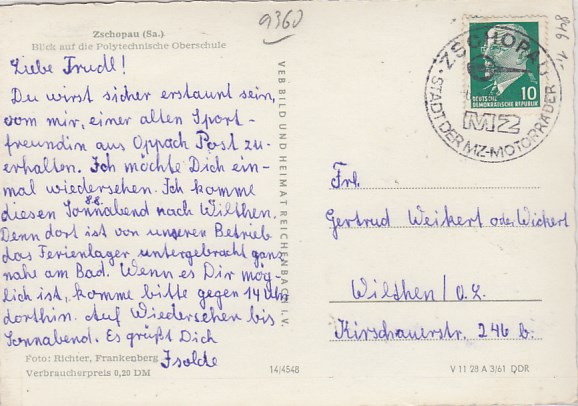 9360
846 1-
Zschopau (Sa.)
Blick auf die Polytechnische Oberschule
Liebe Trudl!
Du wirst sicher erstaunt sein,
vom mir, einer alten Sport-
freundin aus Oppach Post zu-
erhalten. Ich möchte Dich ein-
mal wiedersehen. Ich komme
8.8.
diesen Sonnabend nach Wilthen.
Denn dort ist von unseren Betrieb
das Ferienlager untergebracht ganz
nahe am Bad. Wenn es Dir mög-
lich ist, komme bitte gegen 14 Uhr
dorthin. Auf Wiedersehen bis
Sonnabend. Es grüßt Dich
Isolde
Foto: Richter, Frankenberg
Verbraucherpreis 0,20 DM
VEB BILD UND HEIMAT REICHENBACH I. V.
14/4548
ZSCHOPAU
STADT DER MZ-MOTORRÄDER
MZ
10
DEUTSCHE
DEMOKRATISCHE REPUBLIK
Frl.
Gertrud Weikert oder Wickert
Wilthen/O.L.
Kirschauerstr. 246 b.
V 11 28 A 3/61 DDR